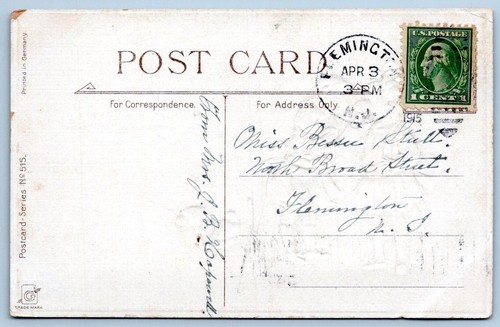 POST CARD
Printed in Germany
Postcard-Series No 515.
TRADE MARK
For Correspondence.
For Address Only.
From Mrs. J. B. Hopewell.
FLEMINGTON
APR 3
3-PM
N.J.
1915
U.S. POSTAGE
1 CENT 1
Miss Bessie Stull.
North Broad Street.
Flemington
N. J.